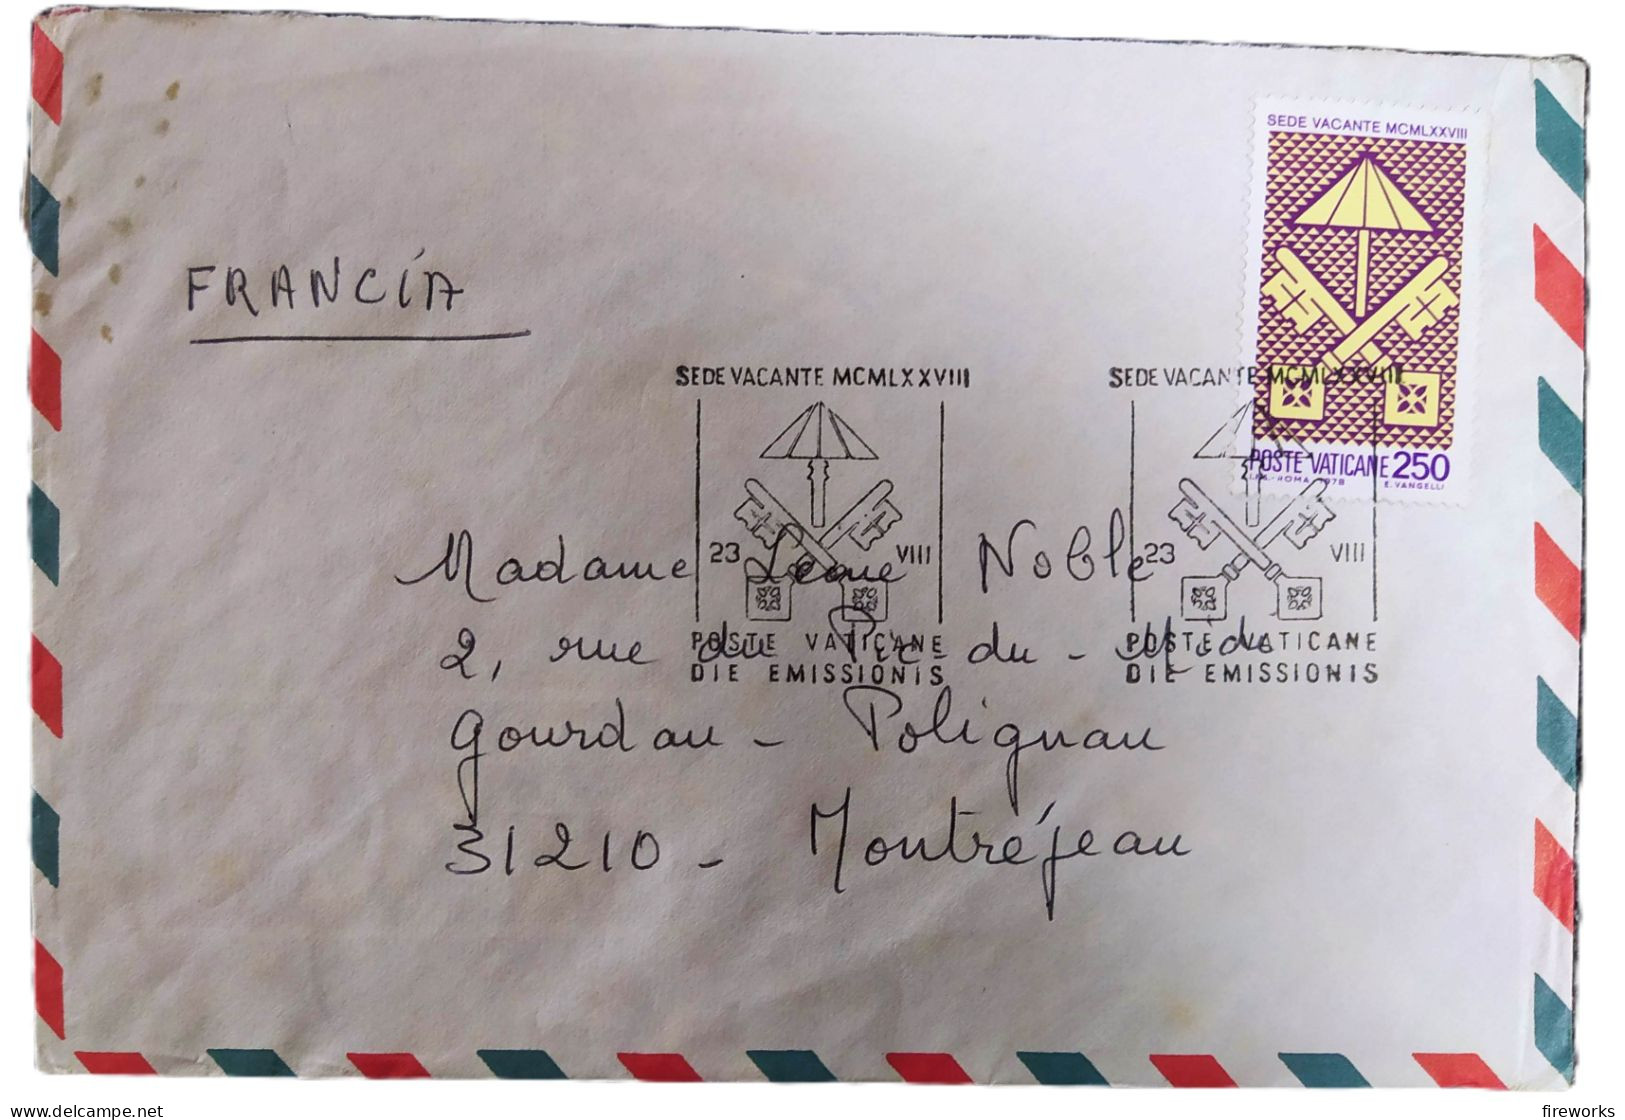 SEDE VACANTE MCMLXXVIII
FRANCIA
POSTE VATICANE 250
I.P.S.-ROMA 1978 E. VANGELLI
SEDE VACANTE MCMLXXVIII
23 VIII
POSTE VATICANE
DIE EMISSIONIS
SEDE VACANTE MCMLXXVIII
23 VIII
POSTE VATICANE
DIE EMISSIONIS
Madame Léone Noble
2, rue du Pic-du-Midi
Gourdan - Polignan
31210 - Montréjeau
delcampe.net
fireworks